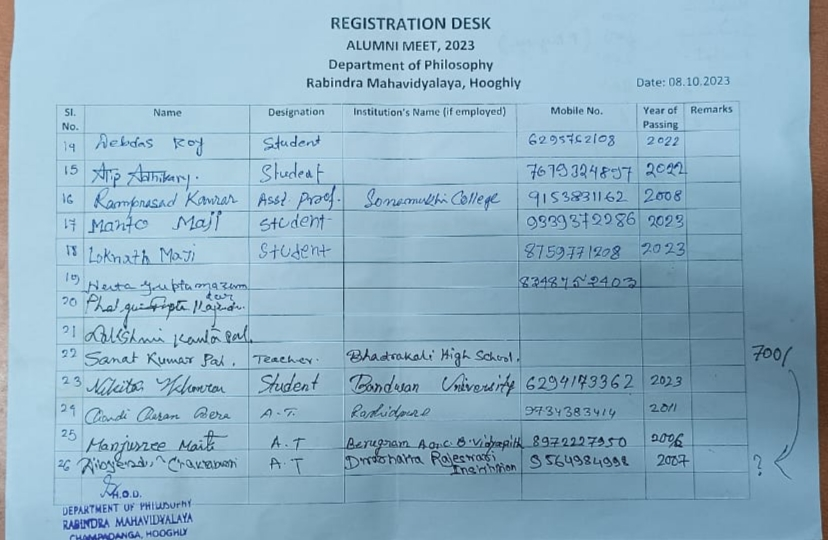 REGISTRATION DESK
ALUMNI MEET, 2023
Department of Philosophy
Rabindra Mahavidyalaya, Hooghly
Date: 08.10.2023
Sl. No. Name Designation Institution's Name (if employed) Mobile No. Year of Passing Remarks
14 Debdas Roy Student 6295762108 2022
15 Adhikary. Student 7679324897 2022
16 Ramprasad Asst. Prof. Sonamukhi College 9153831162 2008
17 Manto Maji Student 9339372286 2023
18 Loknath Maji Student 8759771208 2023
19
20
21 Lakshmi Kanta Pal.
22 Sanat Kumar Pal. Teacher. Bhadrakali High School. 700/
23 Nikita Student Bandwan University 6294143362 2023
24 Chandi Charan Bera A.T. 9734383414 2011
25 Manjusree Maiti A.T 8972227950 2006
26 Chakraborti A.T Rajeswari Institution 9564984998 2007 ?
H.O.D.
DEPARTMENT OF PHILOSOPHY
RABINDRA MAHAVIDYALAYA
CHAMPADANGA, HOOGHLY